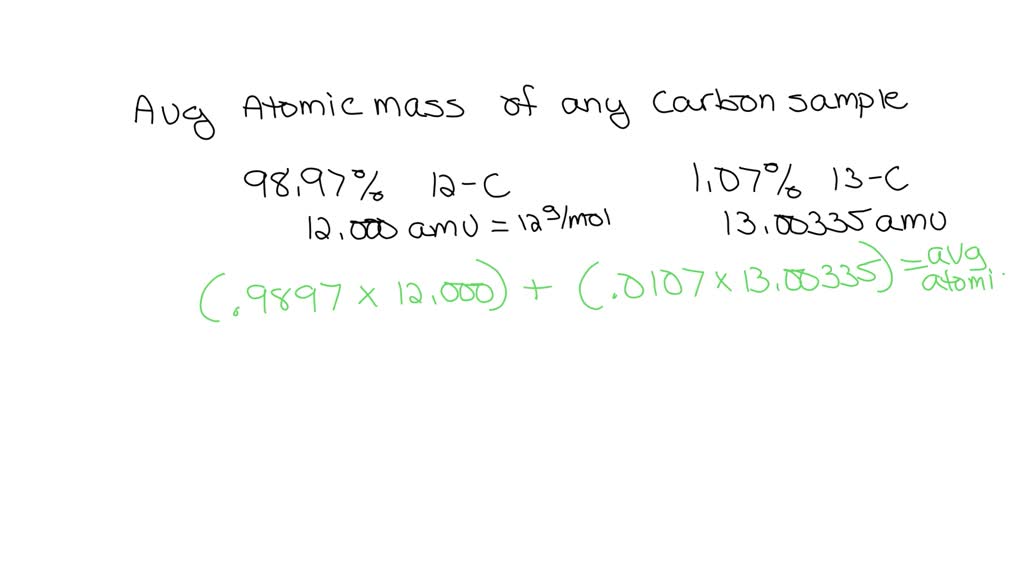 Avg Atomic mass of any Carbon sample
98.97% 12-C 1.07% 13-C
12.000 amu = 12 g/mol 13.00335 amu
(.9897 x 12.000) + (.0107 x 13.00335) = avg
atomi